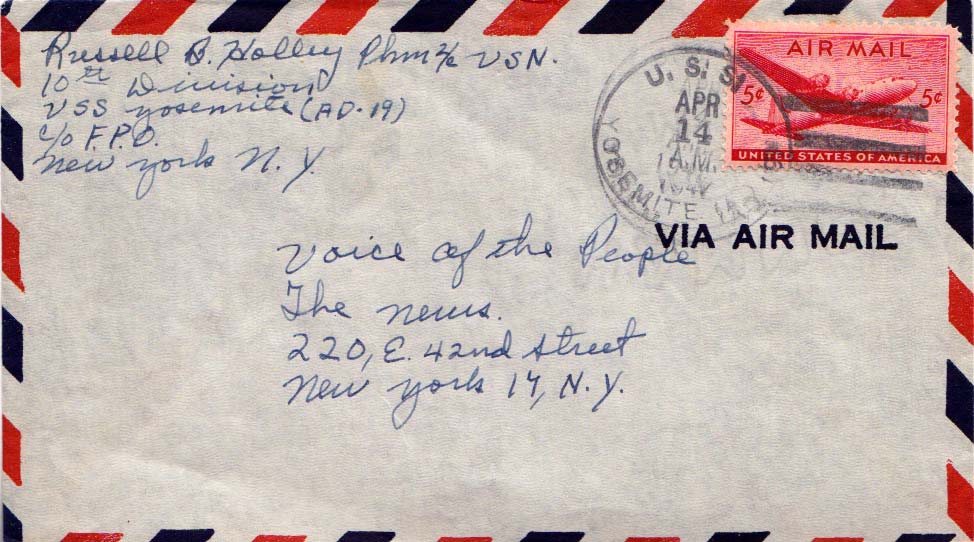 Russell B. Holley Phm2/c USN.
10th Division
USS Yosemite (AD-19)
c/o F.P.O.
New York N.Y.
U.S.S.
YOSEMITE
APR
14
A.M.
AIR MAIL
5¢ 5¢
UNITED STATES OF AMERICA
VIA AIR MAIL
Voice of the People
The News.
220, E. 42nd Street
New York 17, N.Y.